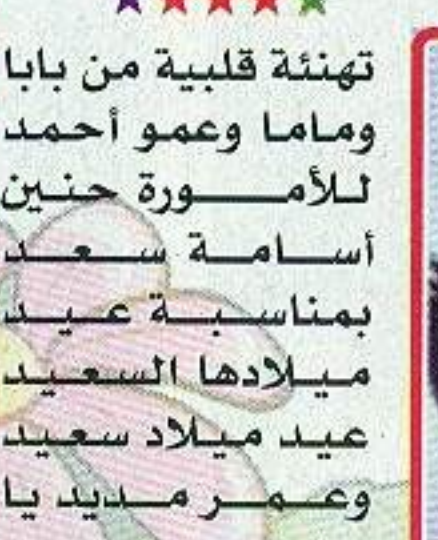 تهنئة قلبية من بابا
وماما وعمو أحمد
للأمورة حنين
أسامة سعد
بمناسبة عيد
ميلادها السعيد
عيد ميلاد سعيد
وعمر مديد يا